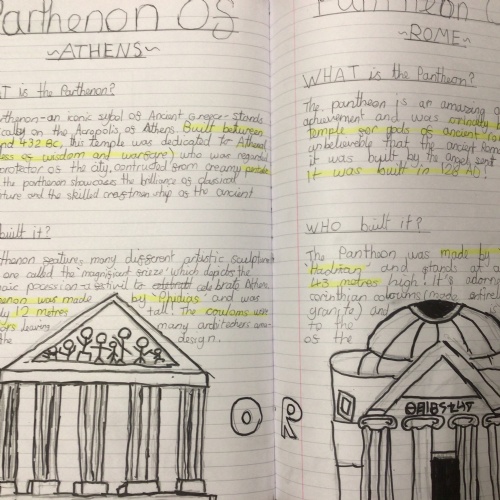 Parthenon OF
~ATHENS~
AT is the Parthenon?
rthenon-an iconic sybol of Ancient Greece-stands
cally on the Acropolis, of Athens. Built between
nd 432 BC, the temple was dedicated to Athena
ess of wisdom and warfare) who was regarded
protector of the city, contructed from creamy
the parthenon showcases the brilliance of classical
ture and the skilled craftmenship of the ancient
built it?
thenon features many different artistic sculptures
are called the 'magnificant frieze' which depicts the
naic possession-festival to celebrate Athena
enon was made by Phidias and was
ly 12 metres tall! The couloms were
ers leaving many architechers
the design.
Pantheon
~ROME~
WHAT is the Pantheon?
The pantheon is an amazing
achievement and was
temple for gods of ancient
unbelievable that the ancient Rom
it was built by the angels sent
It was built in 128 AD!
WHO built it?
The Pantheon was made by
'Hadrian' and stands at
43 metres high! It's adorn
corinthian coloums (made entire
granite) and is
to the
of the
OR